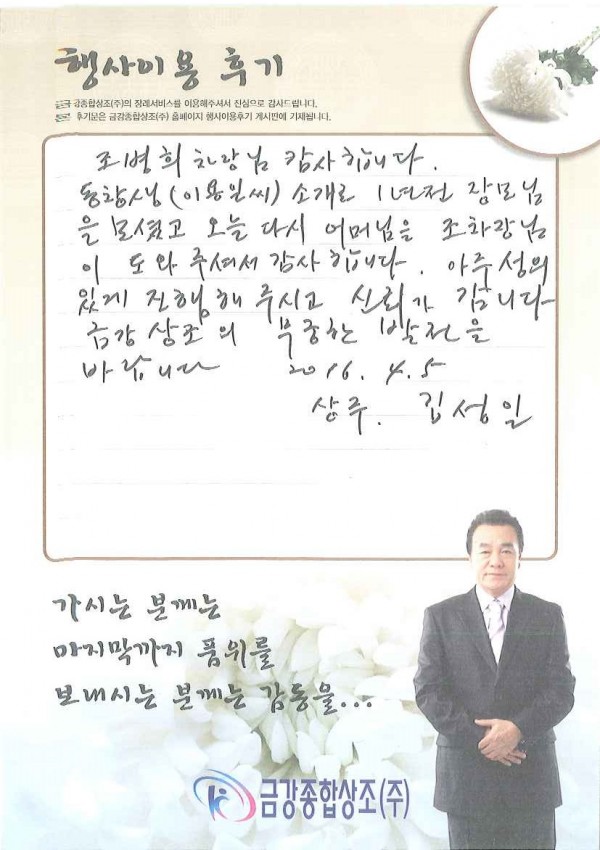 행사이용 후기
금강종합상조(주)의 장례서비스를 이용해주셔서 진심으로 감사드립니다.
본 후기문은 금강종합상조(주) 홈페이지 행사이용후기 게시판에 기재됩니다.
조병희 차장님 감사합니다.
동창생(이용일씨) 소개로 1년전 장모님
을 모셨고 오늘 다시 어머님을 조차장님
이 도와 주셔서 감사합니다. 아주 성의
있게 진행해 주시고 신뢰가 갑니다
금강 상조의 무궁한 발전을
바랍니다 2016. 4. 5
상주. 김성일
가시는 분께는
마지막까지 품위를
보내시는 분께는 감동을...
금강종합상조(주)